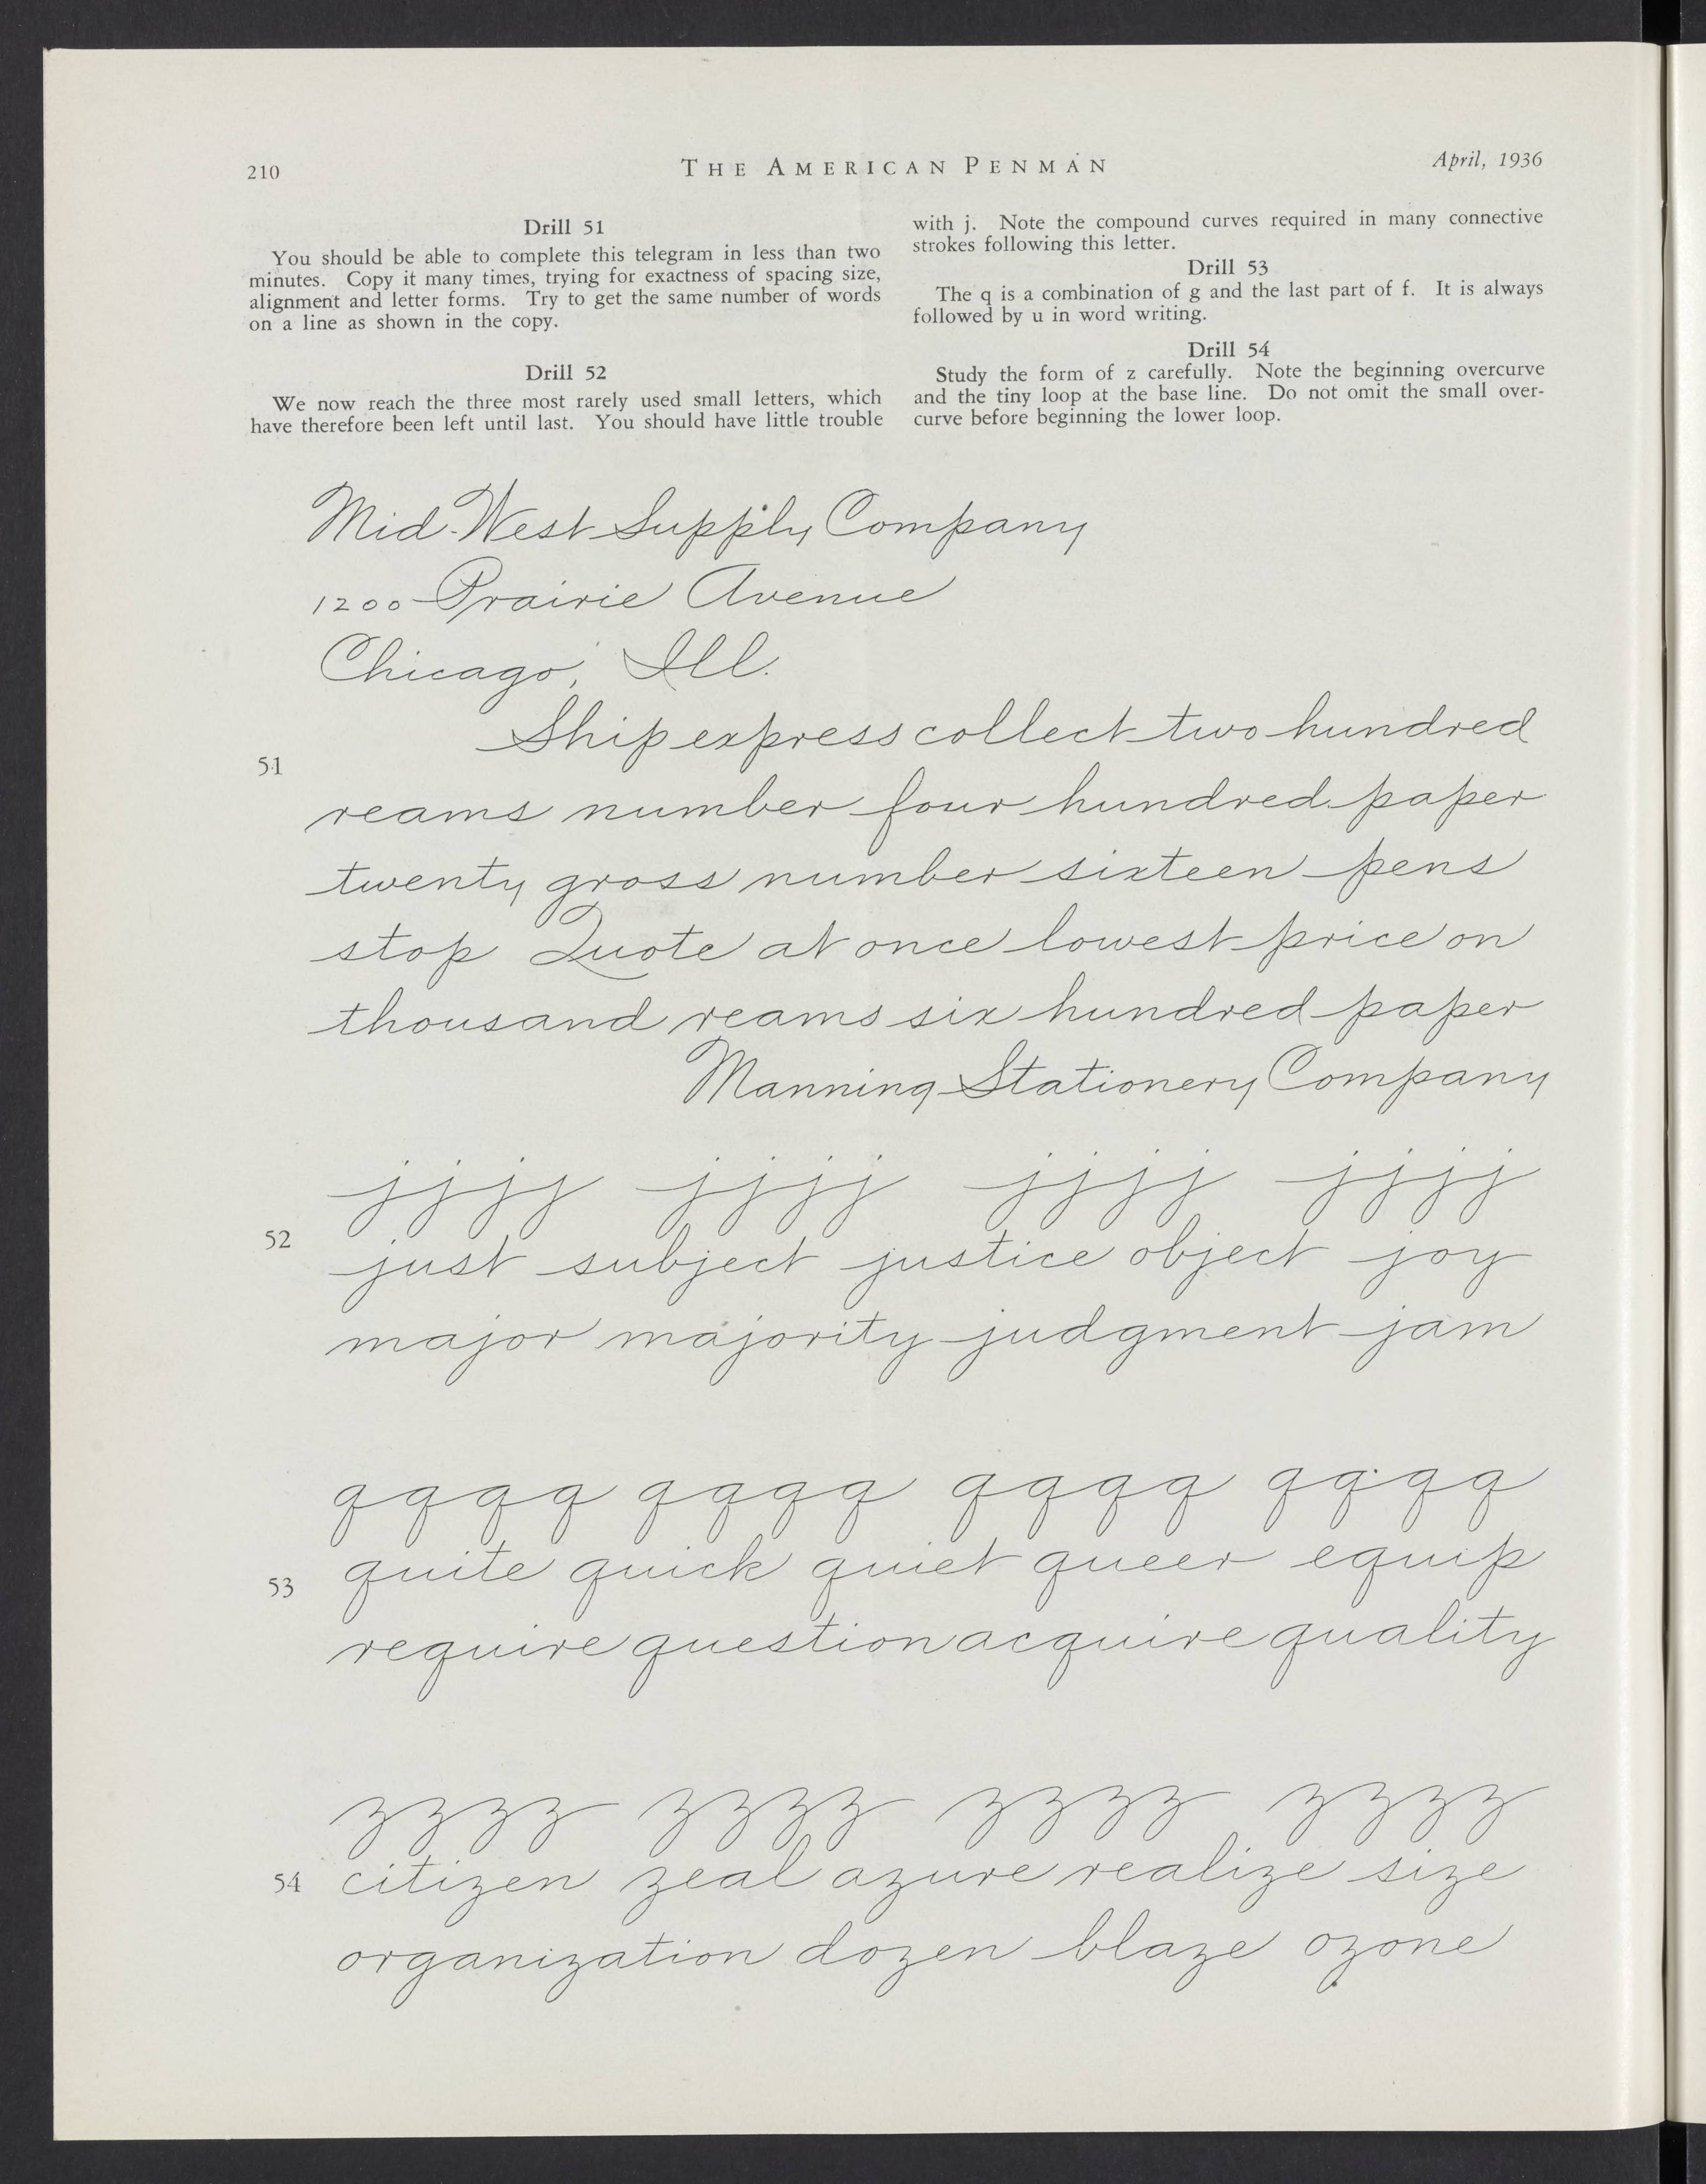 210
THE AMERICAN PENMAN
April, 1936
Drill 51
You should be able to complete this telegram in less than two
minutes. Copy it many times, trying for exactness of spacing size,
alignment and letter forms. Try to get the same number of words
on a line as shown in the copy.
Drill 52
We now reach the three most rarely used small letters, which
have therefore been left until last. You should have little trouble
with j. Note the compound curves required in many connective
strokes following this letter.
Drill 53
The q is a combination of g and the last part of f. It is always
followed by u in word writing.
Drill 54
Study the form of z carefully. Note the beginning overcurve
and the tiny loop at the base line. Do not omit the small over-
curve before beginning the lower loop.
Mid-West Supply Company
1200 Prairie Avenue
Chicago, Ill.
Ship express collect two hundred
51
reams number four hundred paper
twenty gross number sixteen pens
stop Quote at once lowest price on
thousand reams six hundred paper
Manning Stationery Company
jjjj jjjj jjjj jjjj
52
just subject justice object joy
major majority judgment jam
qqqq qqqq qqqq qqqq
53 quite quick quiet queer equip
require question acquire quality
zzzz zzzz zzzz zzzz
54 citizen zeal azure realize size
organization dozen blaze ozone